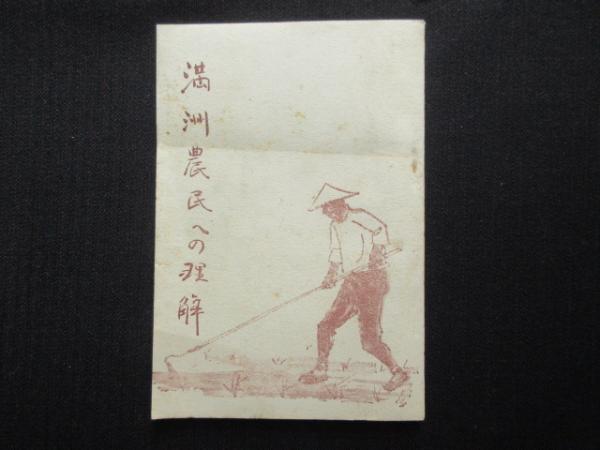 満洲農民への理解